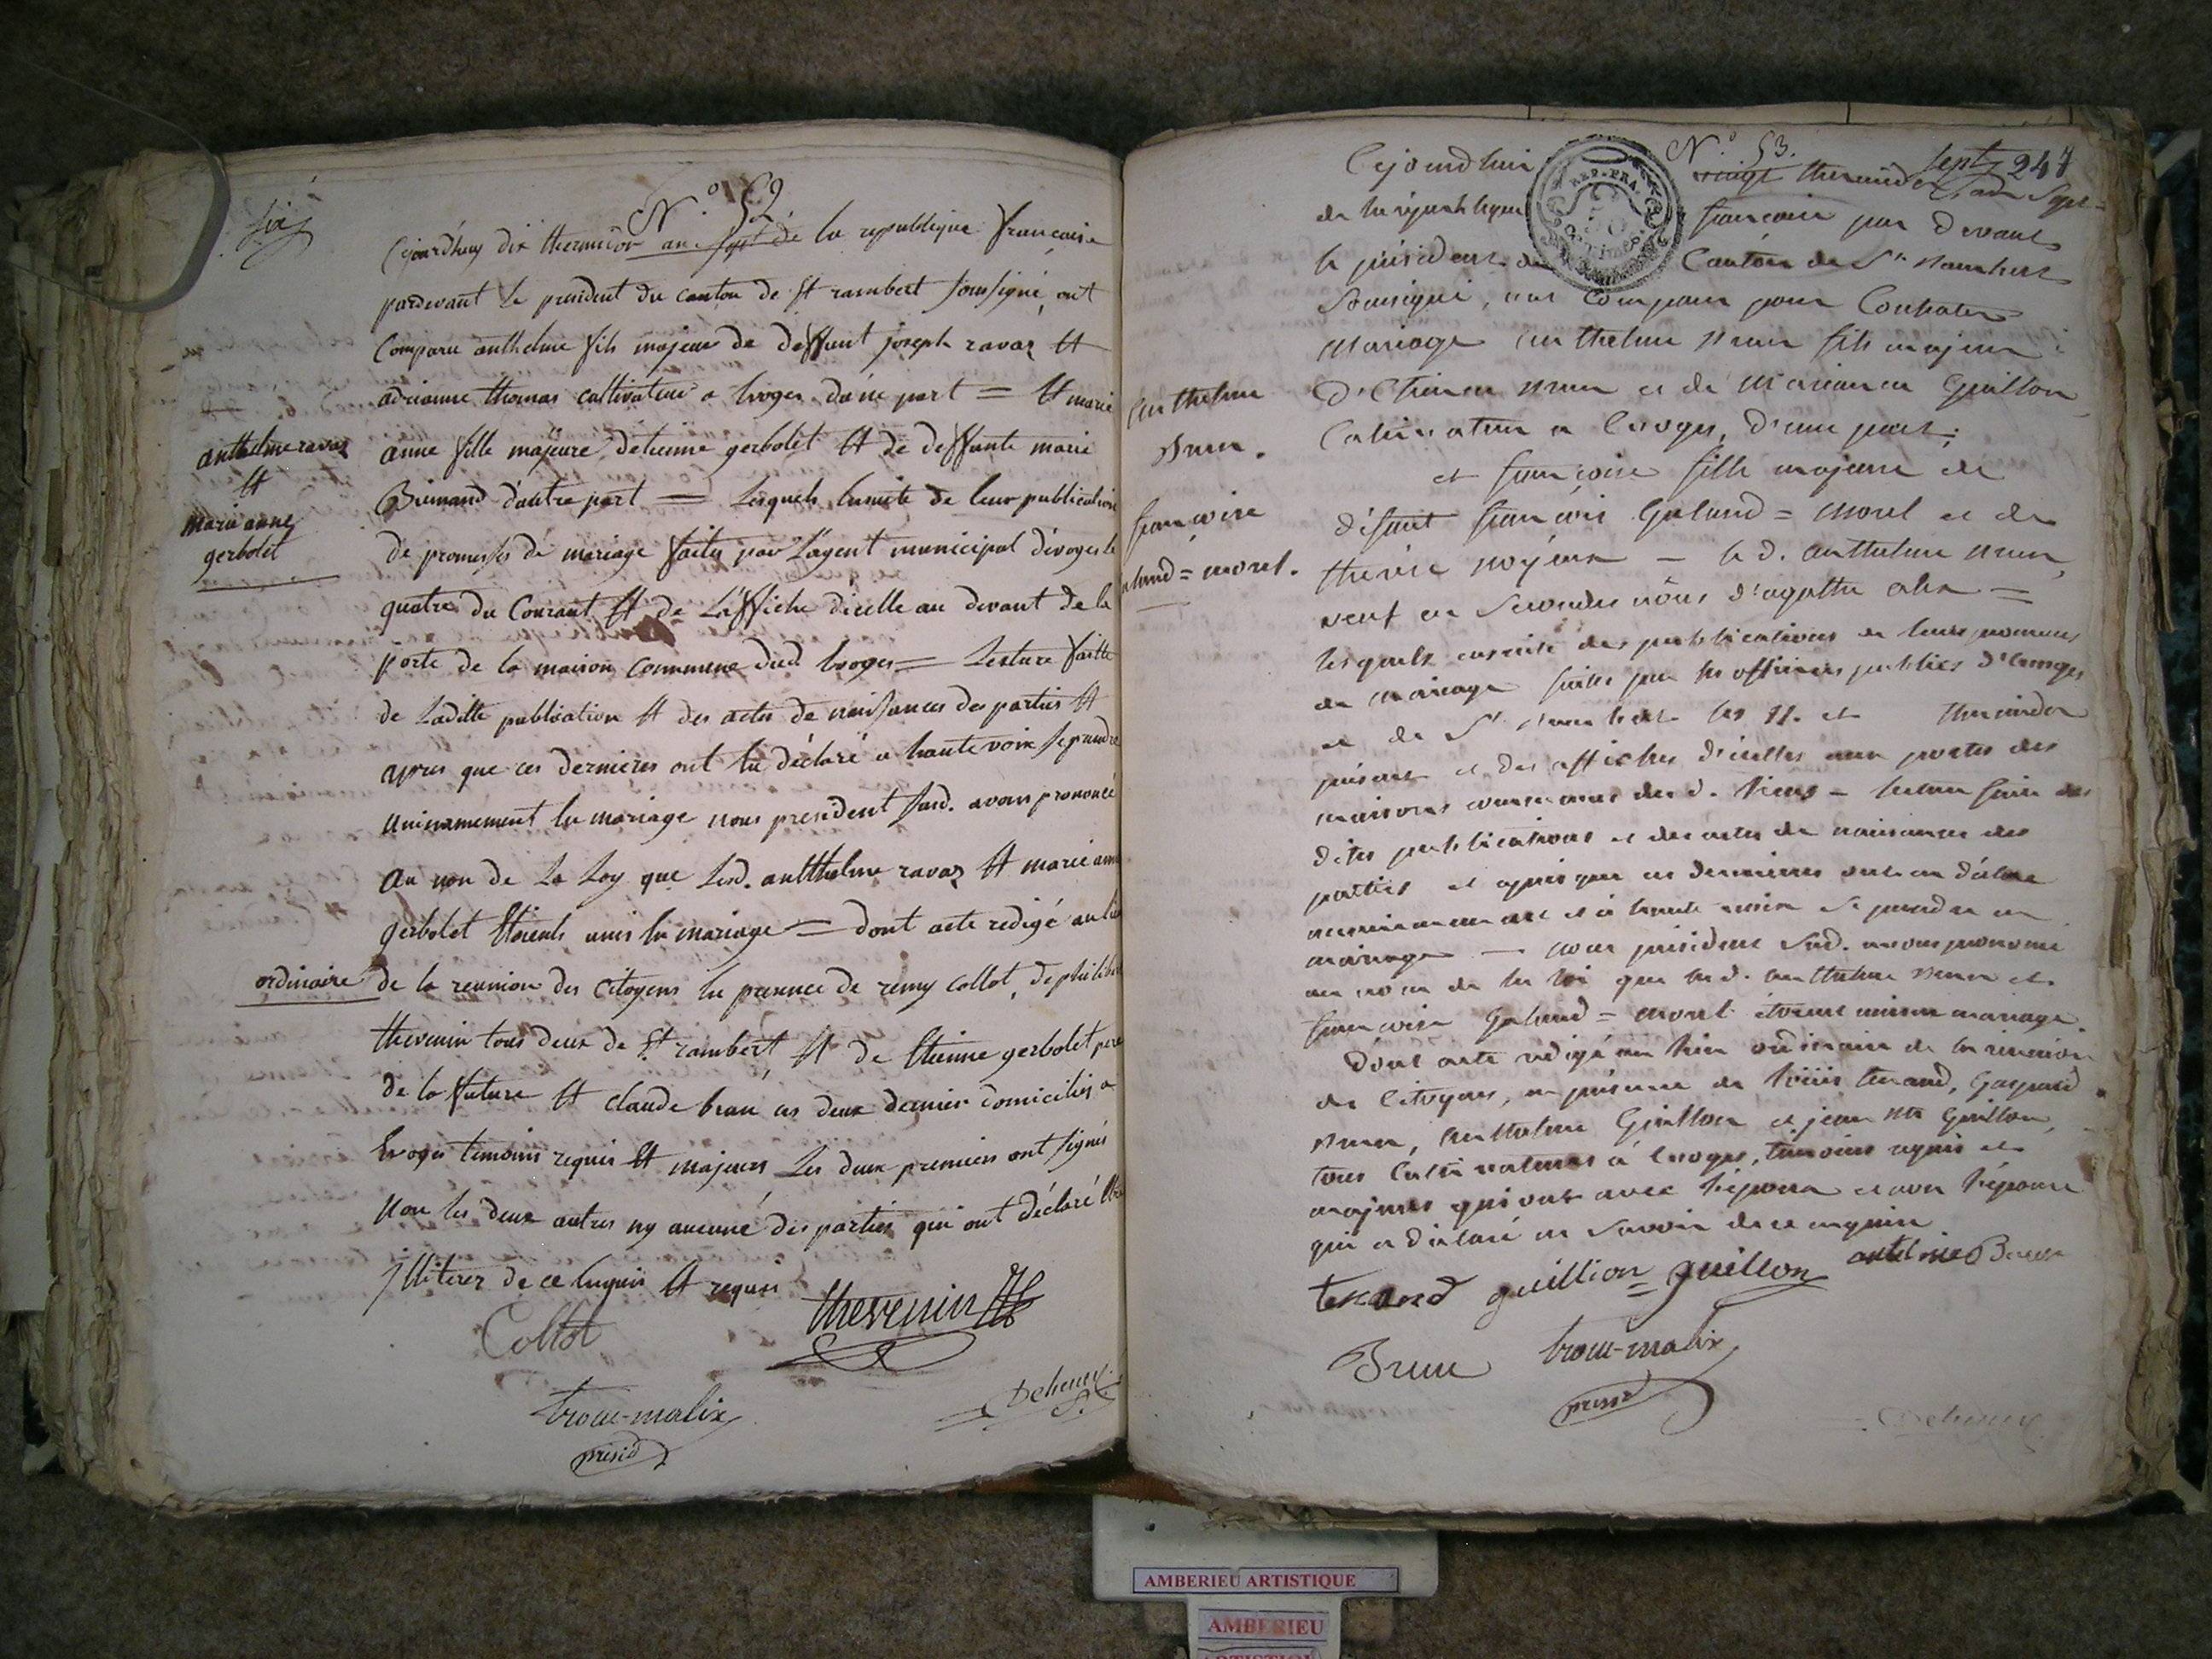 six
N.° 52
Cejourdhuy dix thermidor an sept de la republique française
pardevant le president du canton de St rambert soussigné, ont
Comparu anthelme fils majeur de deffunt joseph ravaz Et
adrianne thomas cultivateur a Evoges d'une part = Et marie
anne fille majeure d'etienne gerbolet Et de deffunte marie
Brimand d'autre part = Lesquels Ensuite de leur publication
de promesses de mariage faites par L'agent municipal d'évoges le
quatre du Courant Et de L'affiche d'icelle au devant de la
porte de la maison commune dud. Evoges = Lecture faitte
de Laditte publication Et des actes de naissances des parties Et
apres que ces dernieres ont Eu déclaré a haute voix se prendre
Unimement En mariage nous president susd. avons prononcé
Au nom de La Loy que Lesd. antthelme ravaz Et marie anne
gerbolet Etoient unis En mariage = dont acte redigé au lieu
ordinaire de la reunion des citoyens En presence de remy collot, de philibert
thevenin tous deux de St rambert, Et de Etienne gerbolet pere
de la future Et claude brun ces deux dernier domiciliés a
Evoges temoins requis Et majeurs Les deux premiers ont signés
Non les deux autres ny aucune des parties qui ont déclaré Etre
Illiterez de ce Enquis Et requis
anthelme ravaz
Et
marie anne
gerbolet
Collot
thevenin
trocu-malix
présid
Deheney
N.° 53.
sept 247
Cejourdhui vingt thermidor l'an sept
de la république française par devant
le président du Canton de St Rambert
soussigné, ont comparu pour Contracter
mariage anthelme Brun fils majeur
d'Etienne Brun et de Marianne Guillon
Cultivateur a Evoges, d'une part;
et françoise fille majeure de
défunt françois Galand = morel et de
therese
 — led. anthelme Brun,
veuf en secondes nôces d'agathe
=
lesquels ensuite des publications de leurs promesses
de mariage faites par les officiers publics d'Evoges
et de St Rambert les 11. et thermidor
présent et des affiches d'icelles aux portes des
maisons communes desd. lieux — lecture faite des
dites publications et des actes de naissances des
parties et après que ces dernieres ont eu déclaré
unanimement et à haute voix se prendre en
mariage — nous président susd. avons prononcé
au nom de la loi que lesd. anthelme Brun et
françoise Galand = morel étoient unis en mariage.
Dont acte rédigé au lieu ordinaire de la reunion
des Citoyens, en présence de
tenand, Gaspard
Brun, Anthelme Guillon et jean
Guillon,
tous Cultivateurs à Evoges, temoins requis et
majeurs qui ont avec l'époux et non l'épouse
qui a déclaré ne savoir de ce enquise
anthelme
Brun.
françoise
aland = morel.
tenand guillion guillon antelme Brun
Brun trocu-malix
présid
Deheney
REP. FRA.
AMBERIEU ARTISTIQUE
AMBERIEU
ARTISTIQUE